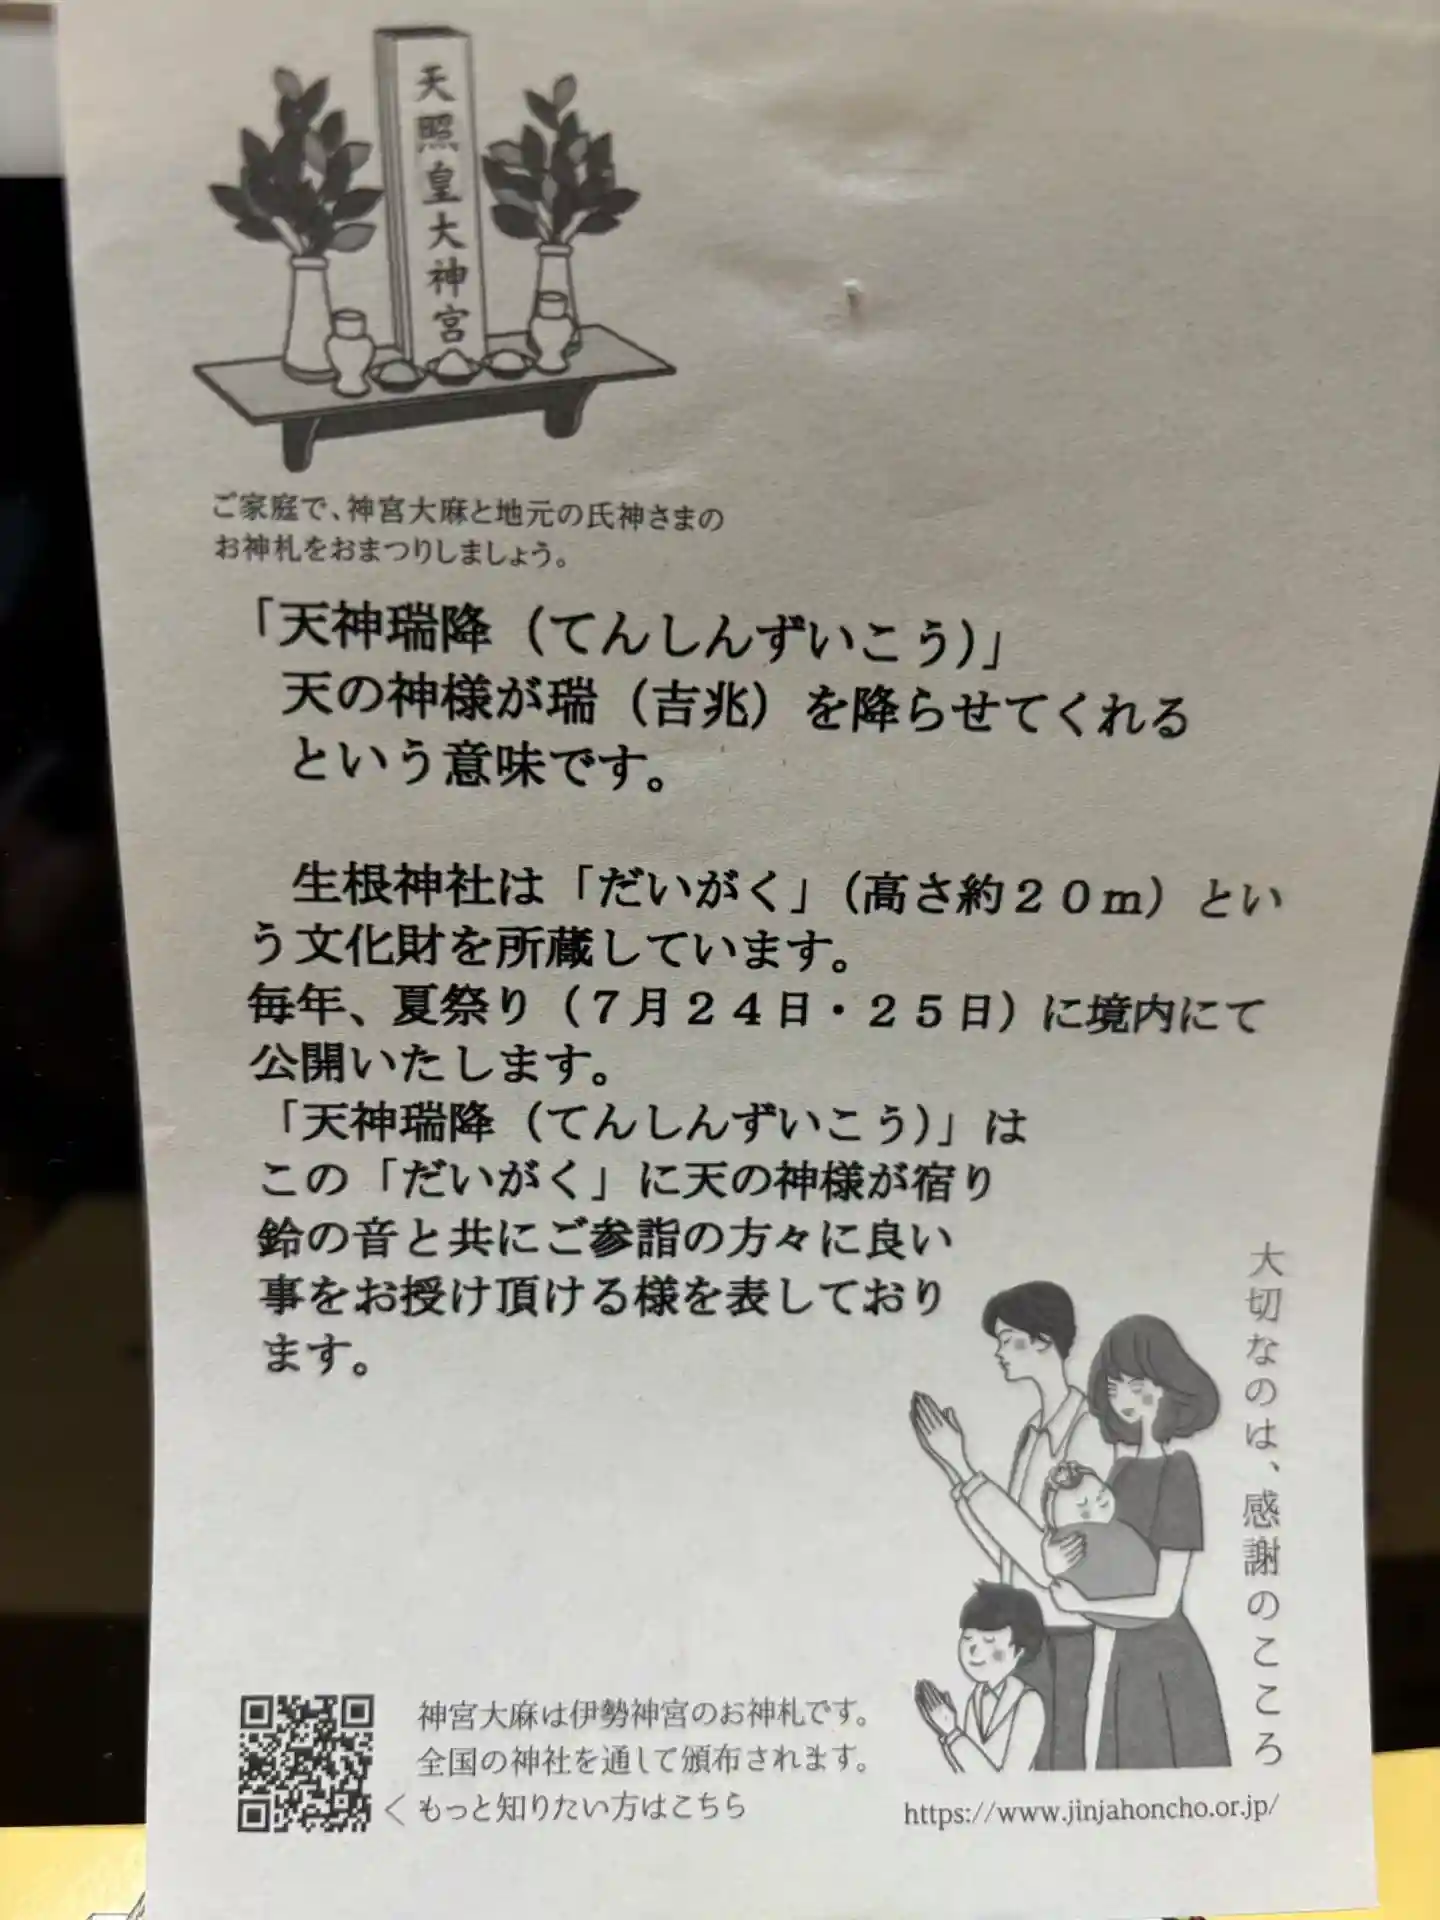 天照皇大神宮
ご家庭で、神宮大麻と地元の氏神さまの
お神札をおまつりしましょう。
「天神瑞降（てんしんずいこう）」
天の神様が瑞（吉兆）を降らせてくれる
という意味です。
生根神社は「だいがく」（高さ約２０ｍ）とい
う文化財を所蔵しています。
毎年、夏祭り（７月２４日・２５日）に境内にて
公開いたします。
「天神瑞降（てんしんずいこう）」は
この「だいがく」に天の神様が宿り
鈴の音と共にご参詣の方々に良い
事をお授け頂ける様を表しており
ます。
大切なのは、感謝のこころ
神宮大麻は伊勢神宮のお神札です。
全国の神社を通して頒布されます。
＜もっと知りたい方はこちら
https://www.jinjahoncho.or.jp/